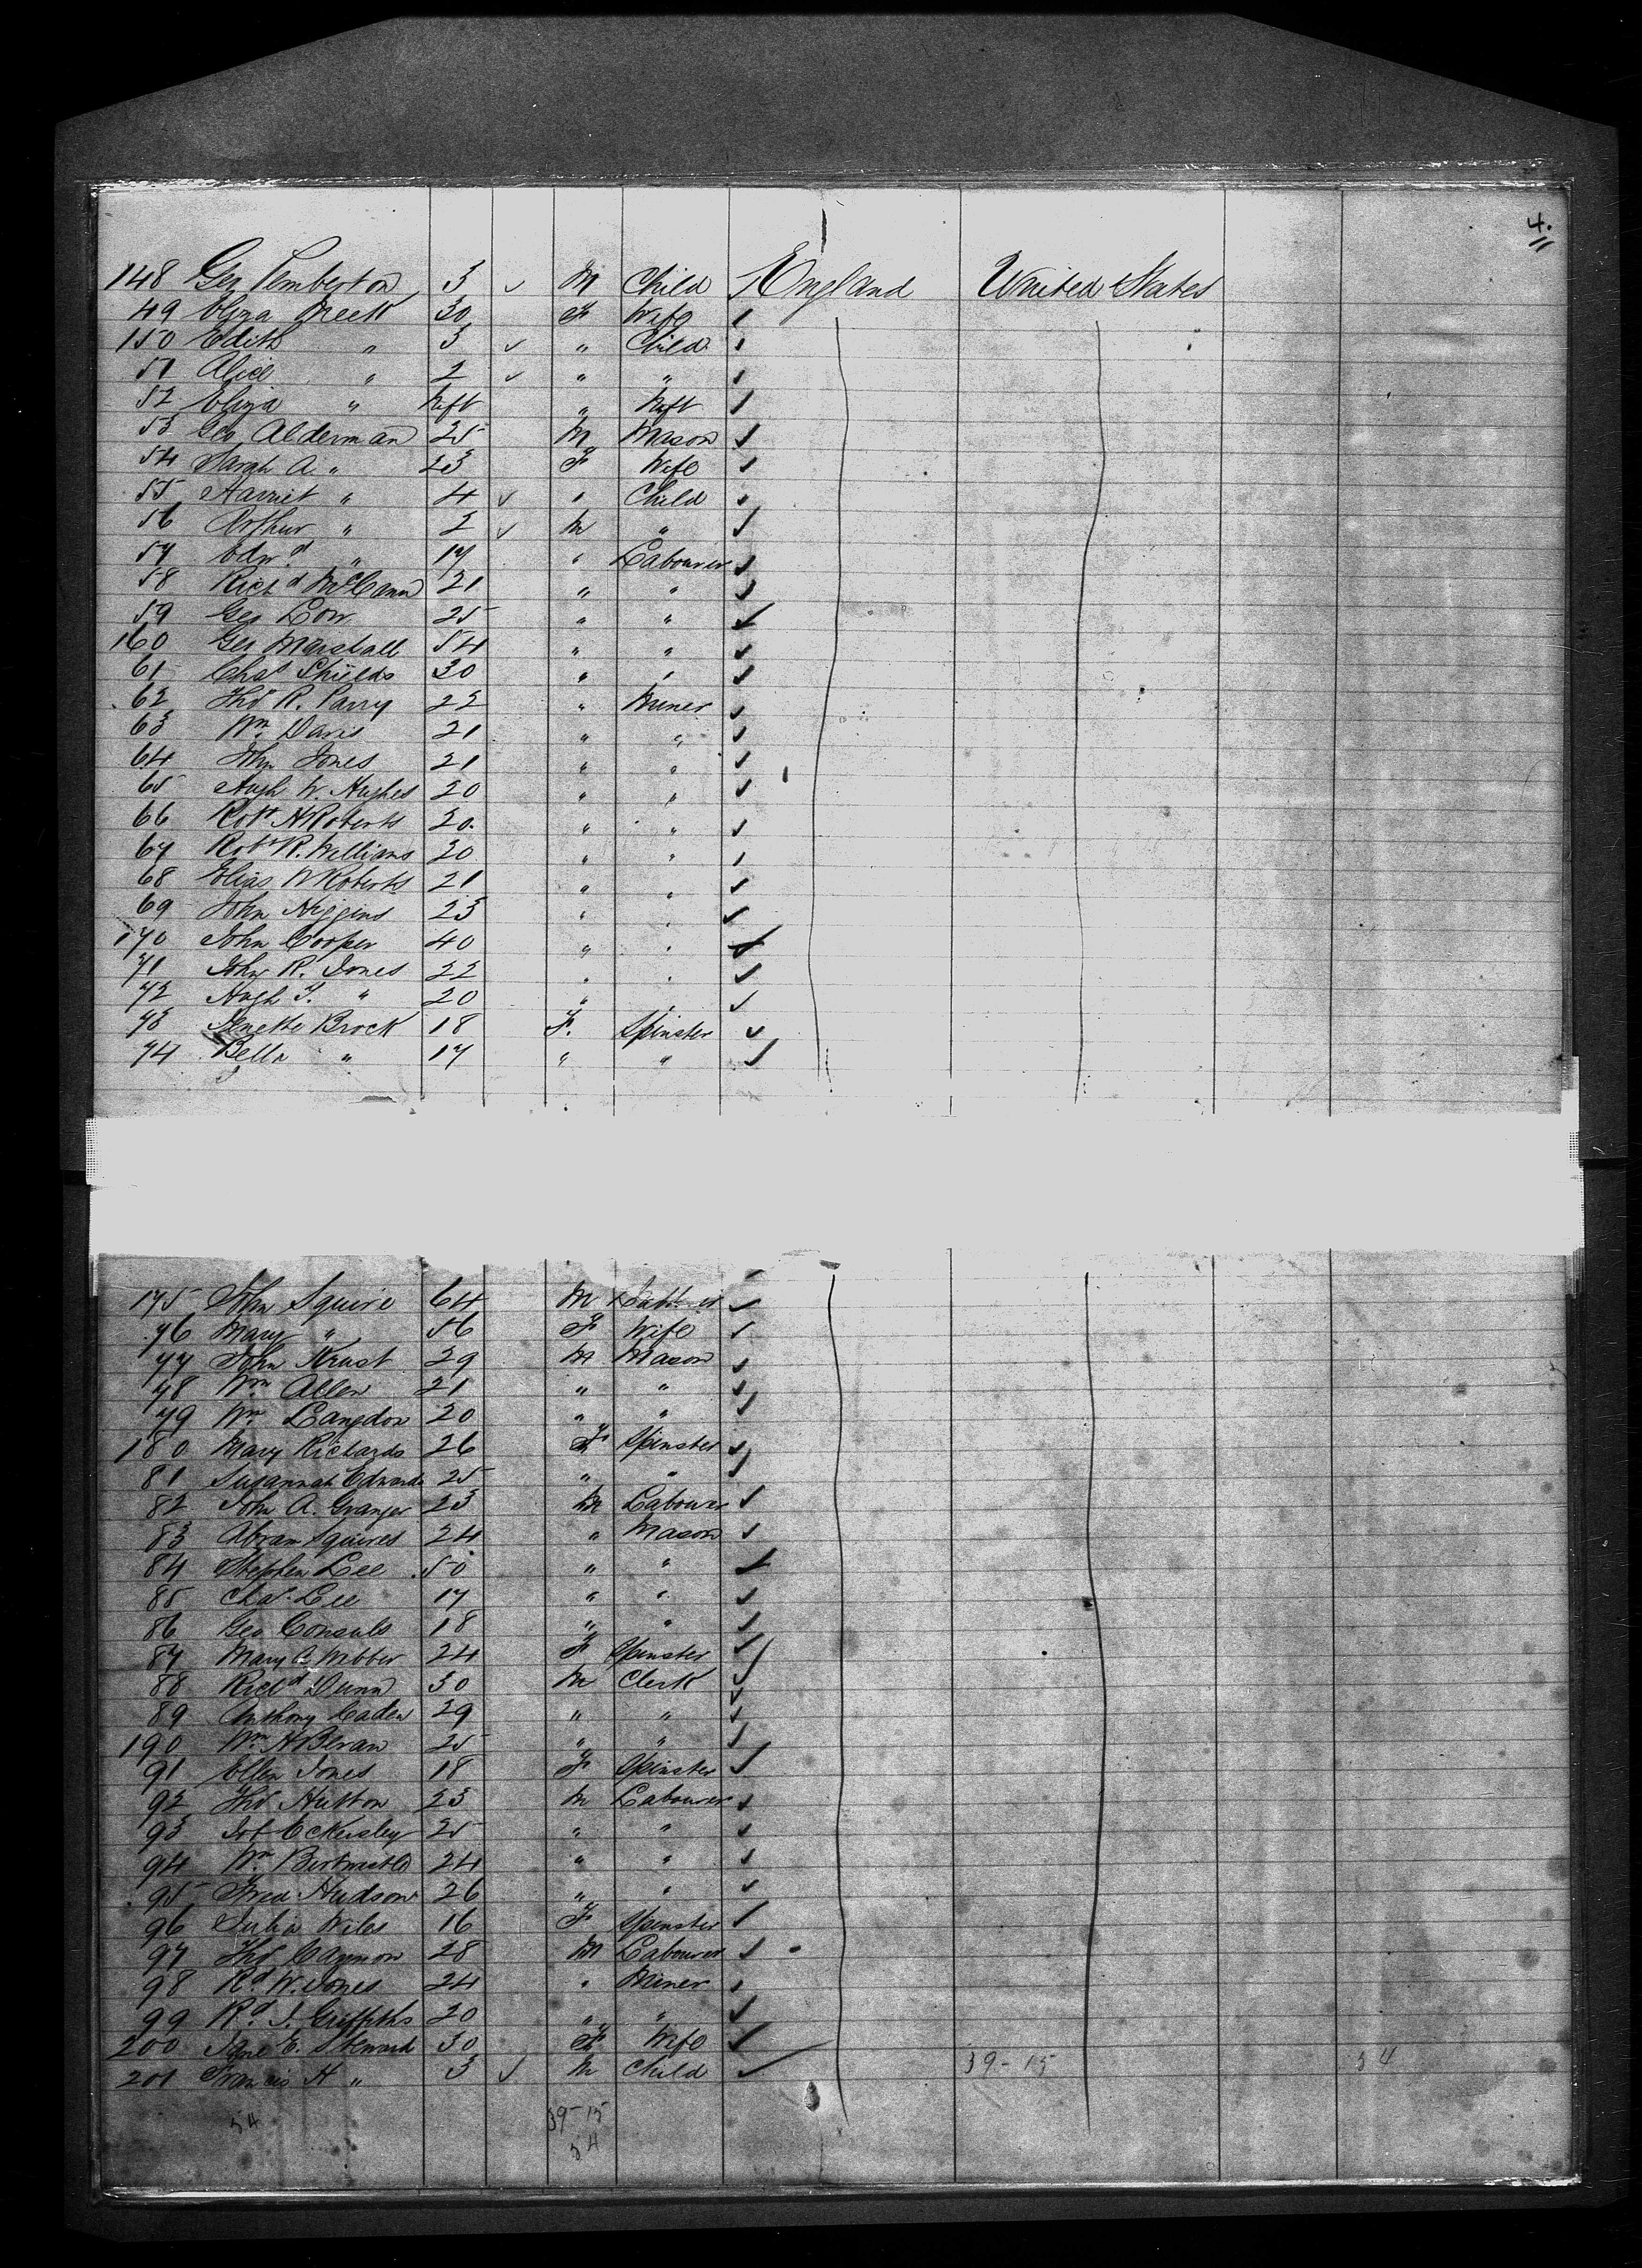 4.
148 Geo Pemberton 3 ✓ M Child England United States
49 Eliza Meek 30 F Wife
150 Edith " 3 ✓ " Child
51 Alice " 2 ✓ " "
52 Eliza " Inft " Inft
53 Geo Alderman 25 M Mason ✓
54 Sarah A. " 23 F Wife ✓
55 Harriet " 4 ✓ " Child
56 Arthur " 2 ✓ M " ✓
57 Edwd " 17 " Labourer ✓
58 Richd McCann 21 " " ✓
59 Geo Low 25 " " ✓
160 Geo Marshall 54 " " ✓
61 Chas Shields 30 " " ✓
62 Thos R. Parry 22 " Miner ✓
63 Wm Davis 21 " " ✓
64 John Jones 21 " " ✓
65 Hugh W. Hughes 20 " " ✓
66 Robt H Roberts 20 " " ✓
67 Robt R. Williams 20 " "
68 Elias W Roberts 21 " " ✓
69 John Higgins 23 " " ✓
170 John Cooper 40 " " ✓
71 John R. Jones 22 " " ✓
72 Hugh T. " 20 " " ✓
73 Jenette Brock 18 F. Spinster ✓
74 Bella " 17 " " ✓
175 John Squire 64 M ✓
76 Mary " 56 F Wife ✓
77 John 29 M Mason ✓
78 Wm Allen 21 " " ✓
79 Wm Langdon 20 " " ✓
180 Mary Richards 26 F Spinster ✓
81 Susannah Edwards 25 " " ✓
82 John A. Granger 23 M Labourer ✓
83 Abram Squires 24 " Mason ✓
84 Stephen Lee 50 " " ✓
85 Chas Lee 17 " " ✓
86 Geo 18 " " ✓
87 Mary A Webber 24 F Spinster ✓
88 Richd Dunn 30 M Clerk ✓
89 Anthony Caden 29 " " ✓
190 Wm H Bevan 25 " " ✓
91 Ellen Jones 18 F Spinster ✓
92 Thos Hutton 23 M Labourer ✓
93 Job Eckersley 25 " " ✓
94 Wm 24 " " ✓
95 Fred Hudson 26 " " ✓
96 Julia Wiles 16 F Spinster ✓
97 Thos 28 M Labourer ✓
98 Rd W. Jones 24 " Miner
99 Rd J. Griffiths 20 " " ✓
200 Jane E. Steward 30 F Wife ✓
201 Francis H " 3 ✓ M Child ✓ 39-15 54
54 39-15
54